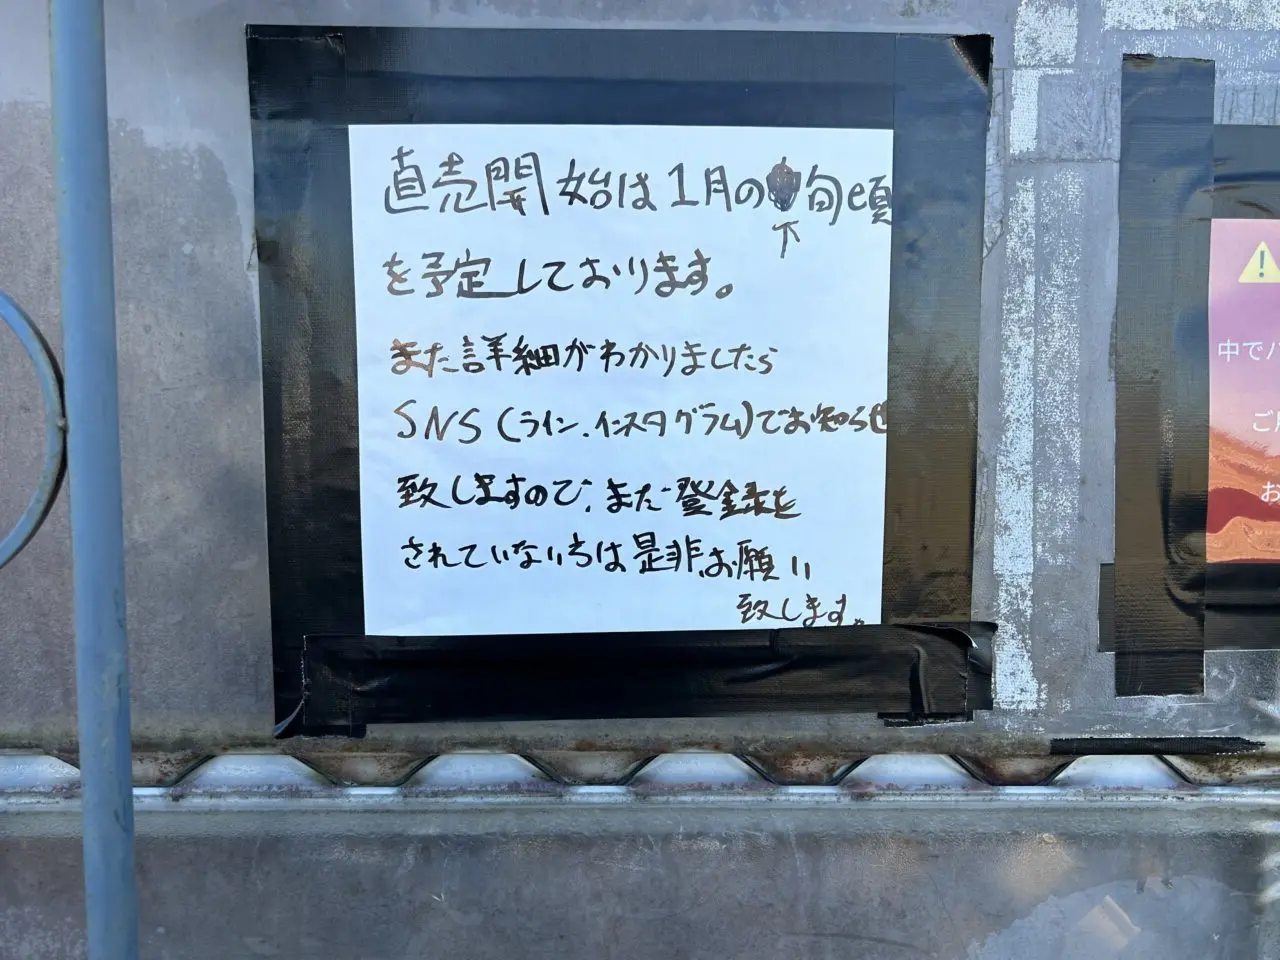 直売開始は1月の旬頃
↑
を予定しております。
また詳細がわかりましたら
SNS(ライン.インスタグラム)でお知らせ
致しますので、まだ登録を
されていない方は是非お願い
致します。
中でバ
ご
お